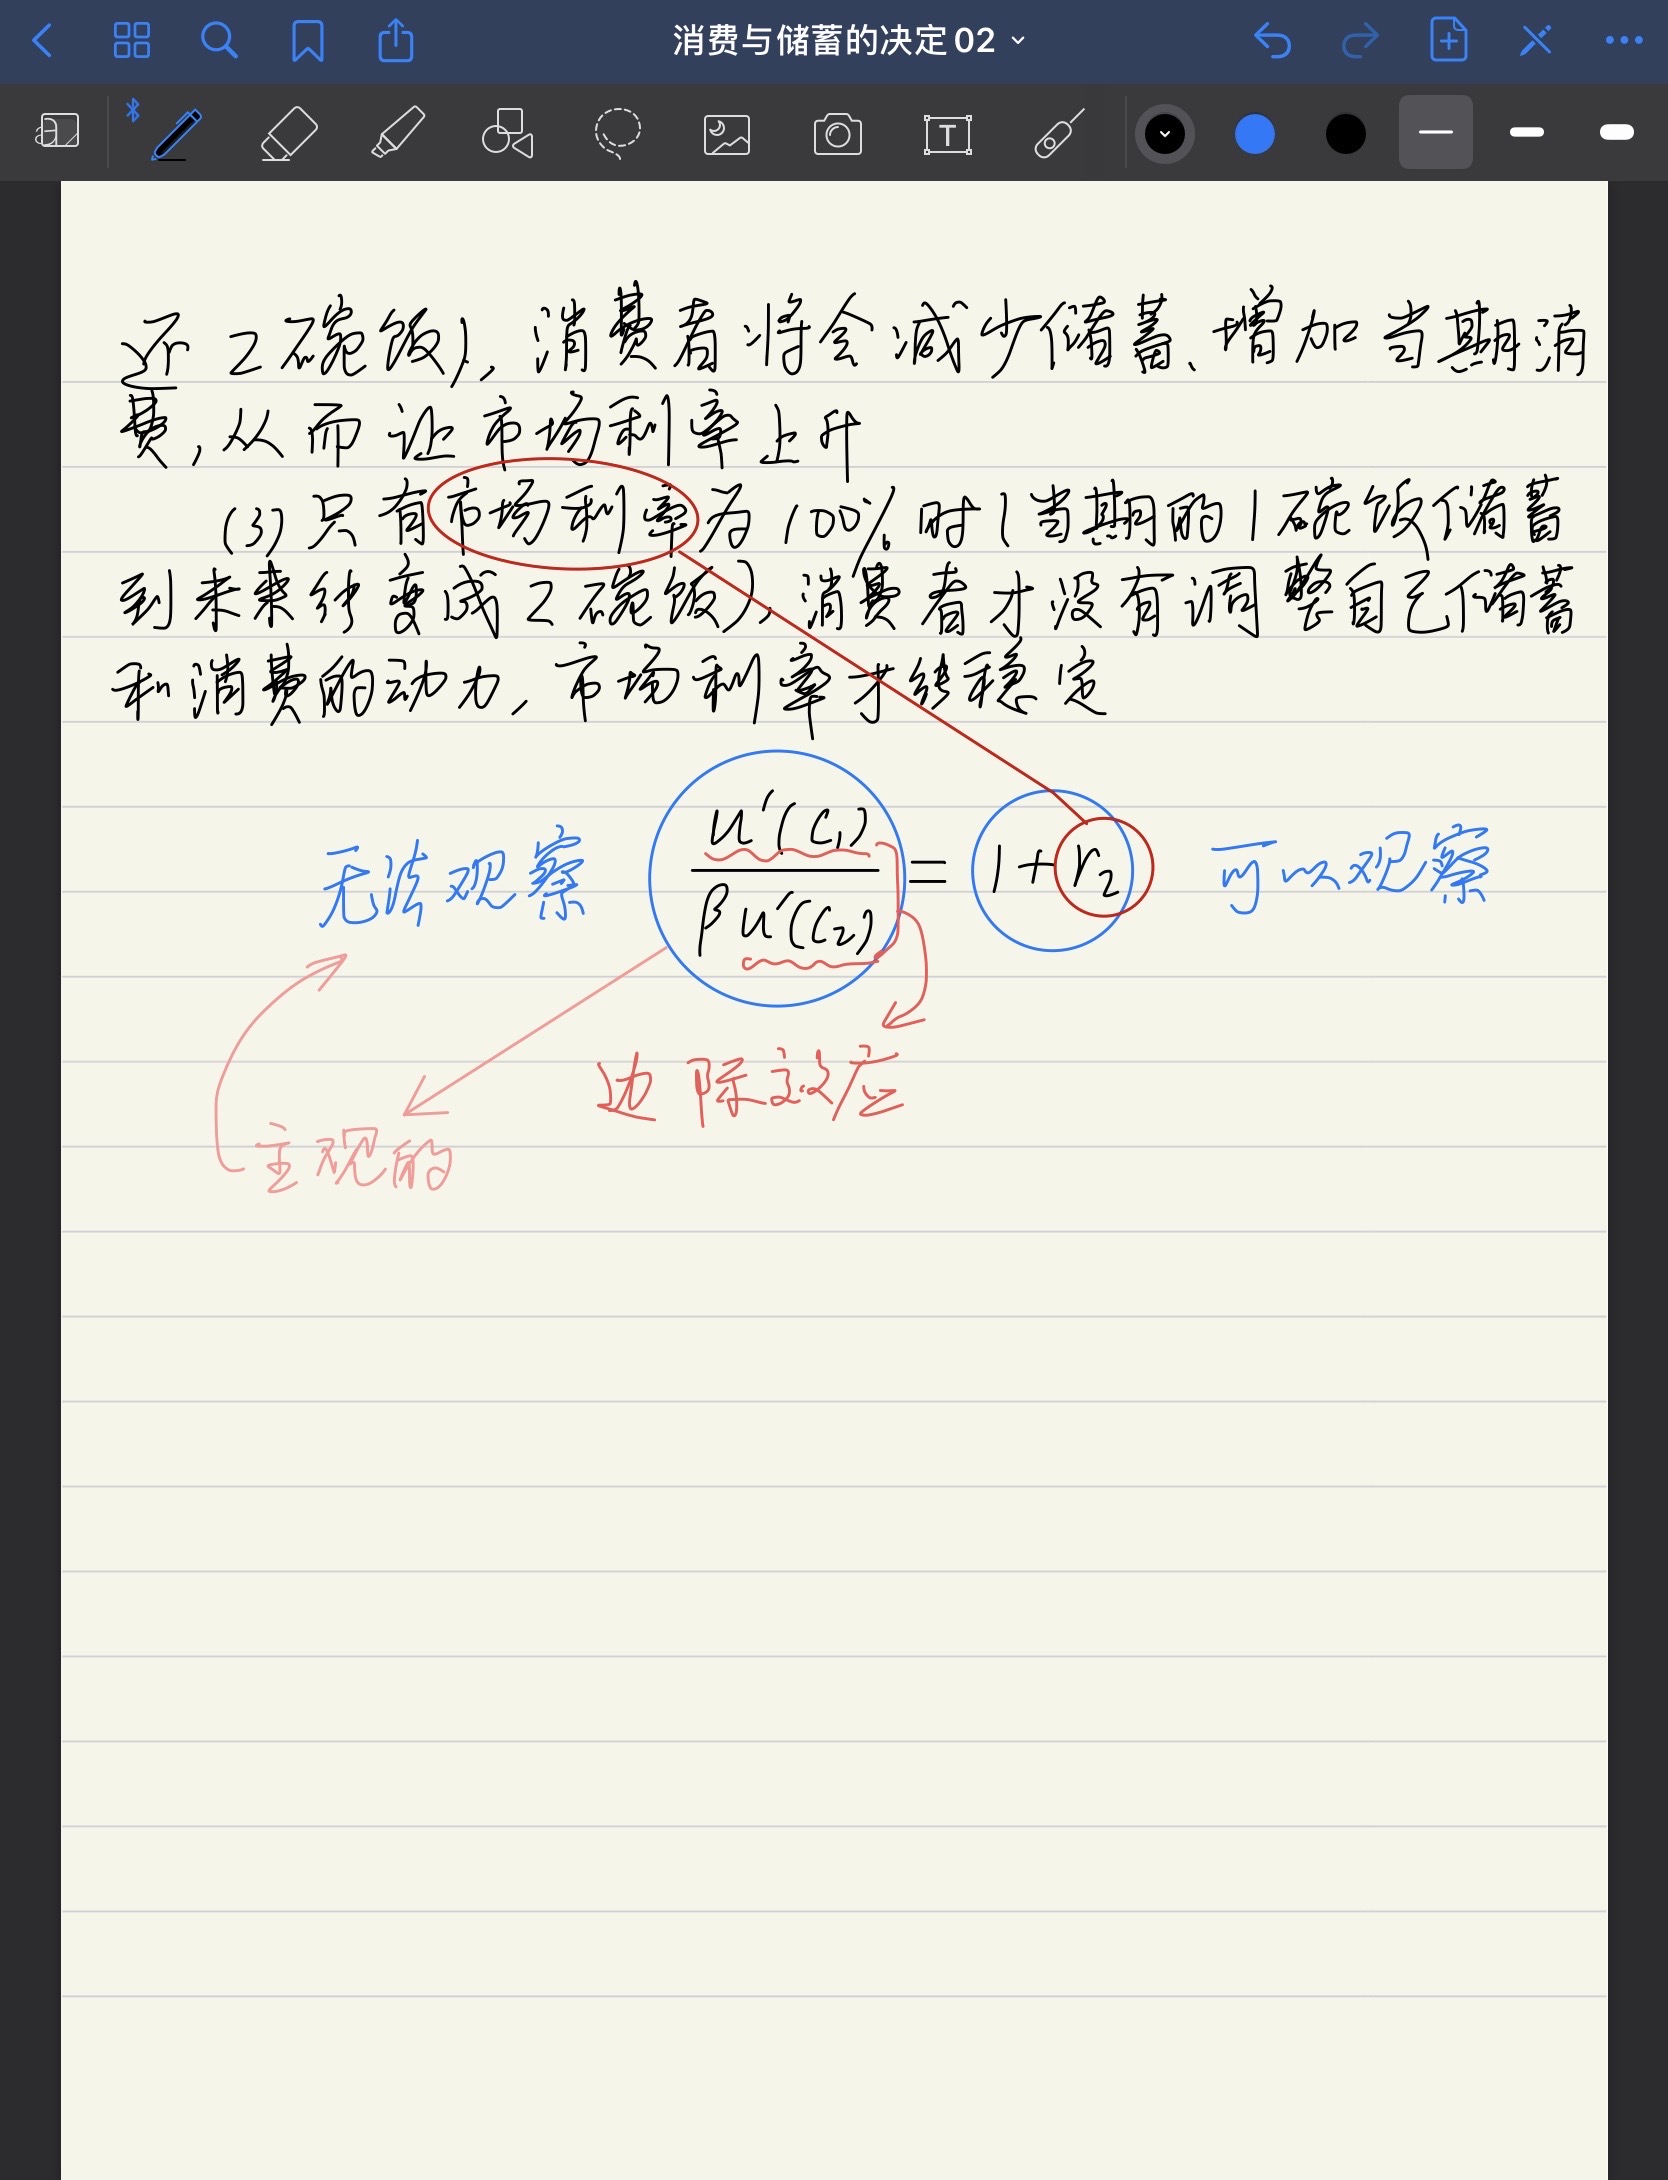 消费与储蓄的决定02
不到2碗饭），消费者将会减少储蓄、增加当期消
费，从而让市场利率上升
(3) 只有市场利率为100%时（当期的1碗饭储蓄
到未来能变成2碗饭），消费者才没有调整自己储蓄
和消费的动力，市场利率才能稳定
无法观察
u'(c₁)
βu'(c₂)
= 1+r₂
可以观察
边际效应
主观的